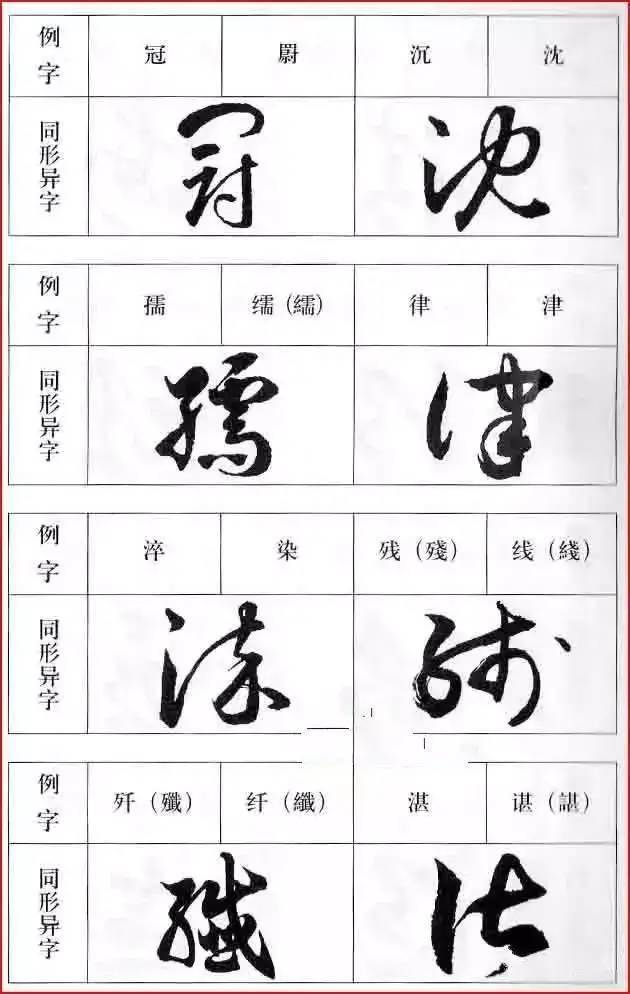 例字 冠 尉 沉 沈
同形异字
例字 孺 繻（繻） 律 津
同形异字
例字 淬 染 残（殘） 线（綫）
同形异字
例字 歼（殲） 纤（纖） 湛 谌（諶）
同形异字